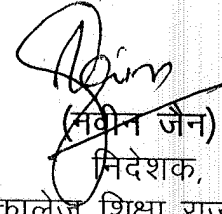 (नवीन जैन)
निदेशक,
कालेज शिक्षा राज